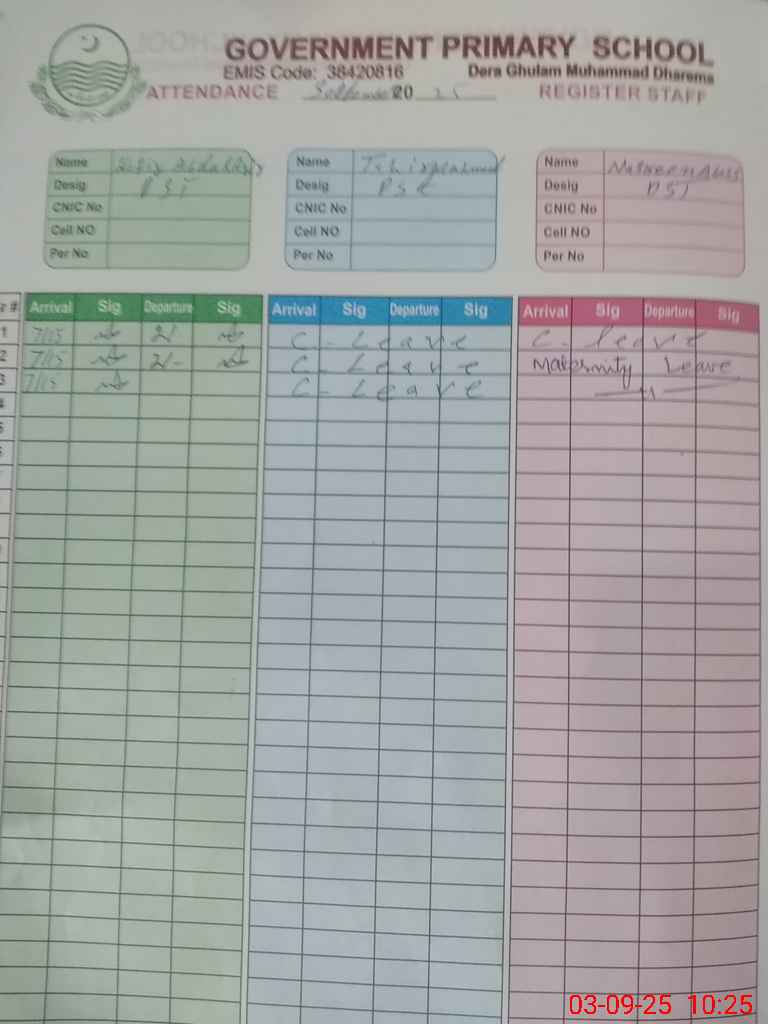 GOVERNMENT PRIMARY SCHOOL
EMIS Code: 38420816 Dera Ghulam Muhammad Dharema
ATTENDANCE 20 25 REGISTER STAFF
Name
Desig PST
CNIC No
Cell NO
Per No
Name
Desig
CNIC No
Cell NO
Per No
Name
Desig PST
CNIC No
Cell NO
Per No
Arrival Sig Departure Sig Arrival Sig Departure Sig Arrival Sig Departure Sig
1 7/15 2/ C - Leave C - leave
2 7/15 2/- C - Leave Maternity Leave
3 7/15 C - Leave
03-09-25 10:25